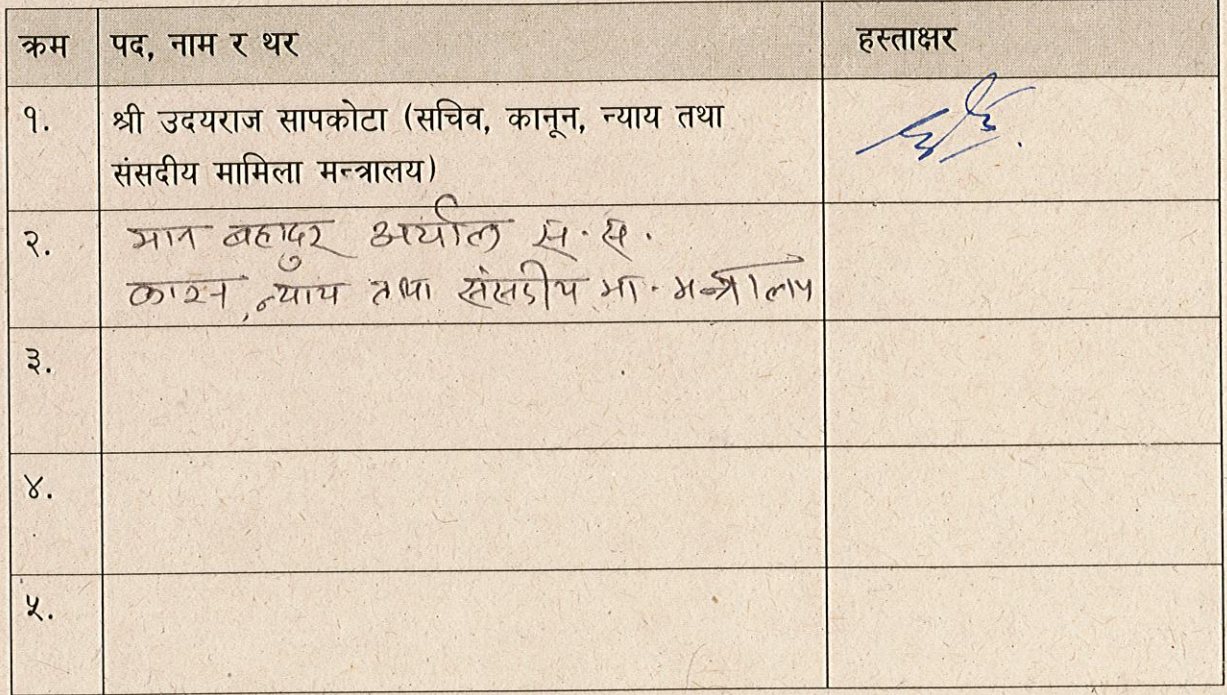 क्रम पद, नाम र थर हस्ताक्षर
१. श्री उदयराज सापकोटा (सचिव, कानून, न्याय तथा
संसदीय मामिला मन्त्रालय)
२. मान बहादुर अर्याल स.स.
कानून, न्याय तथा संसदीय मा. मन्त्रालय
३.
४.
५.